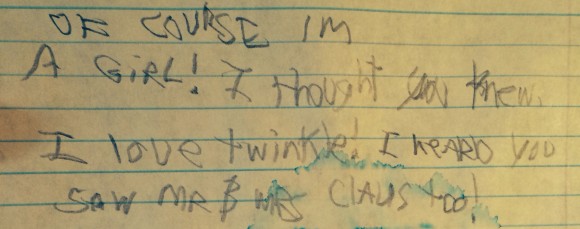 OF COURSE IM
A GIRL! I thought you knew.
I love twinkle! I HEARD YOU
SAW MR & MRS CLAUS too!